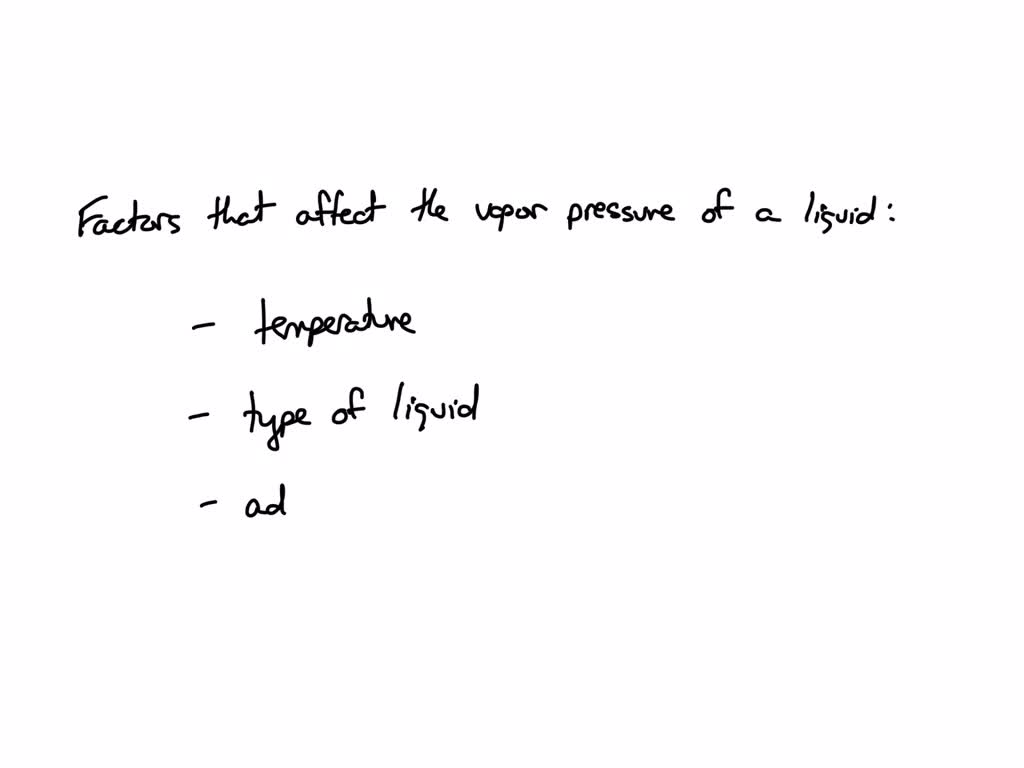 Factors that affect the vapor pressure of a liquid:
- temperature
- type of liquid
- ad